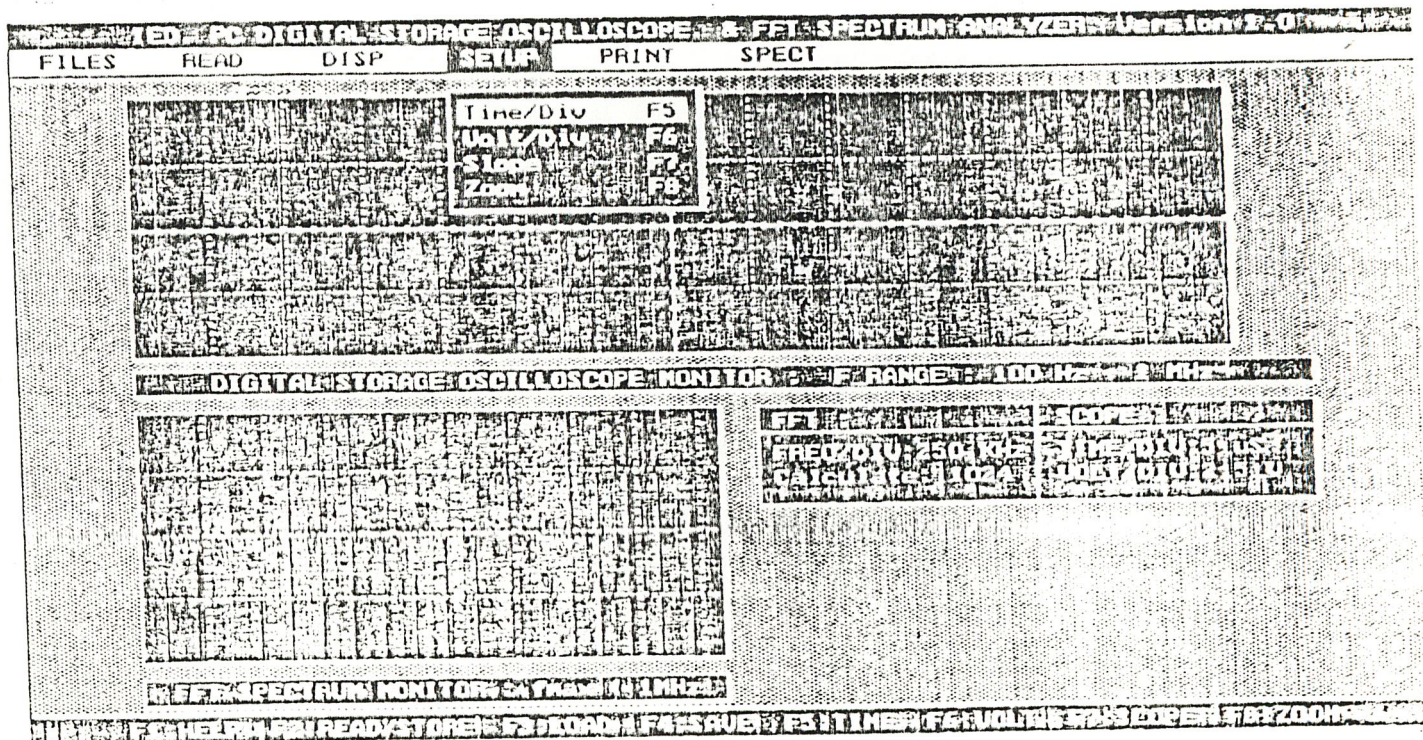 IED - PC DIGITAL STORAGE OSCILLOSCOPE & FFT SPECTRUM ANALYZER Version 1.0
FILES READ DISP SETUP PRINT SPECT
Time/Div F5
Volt/Div F6
Slope F7
Zoom F8
DIGITAL STORAGE OSCILLOSCOPE MONITOR F RANGE 100 Hz MHz
FFT SCOPE
FREQ/DIV: 250 KHZ TIME/DIV
VOLT/DIV
FFT SPECTRUM MONITOR fmax 1MHz
F1:HELP READ/STORE F3:LOAD F4:SAVE F5:TIME F6:VOLT F8:ZOOM